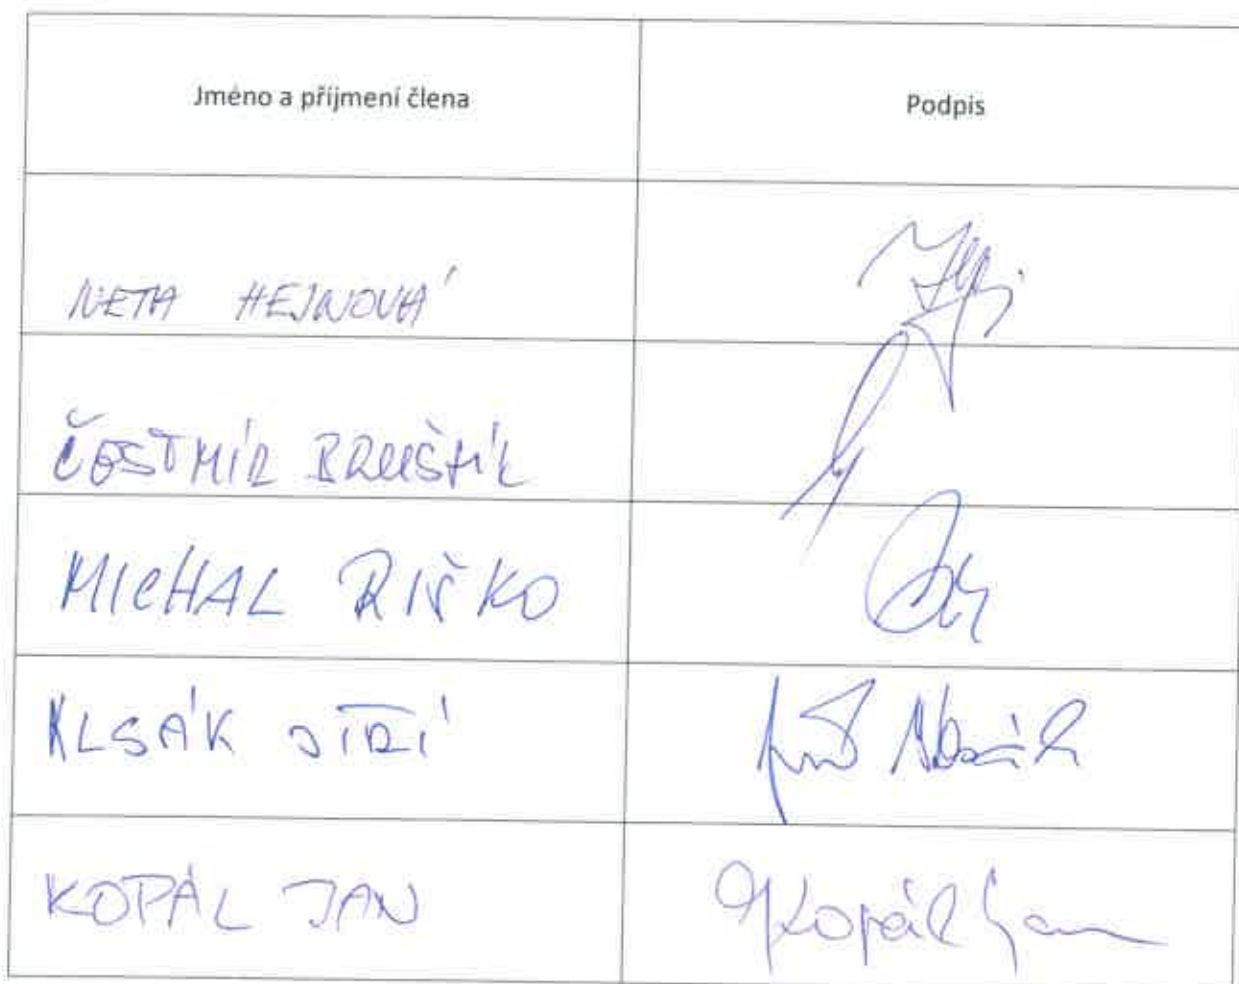 Jméno a příjmení člena Podpis
NETA HEJNOVÁ
ČESTMÍR BRUŠTÍK
MICHAL RIŠKO
KLSÁK JIŘÍ
KOPÁL JAN Kopál Jan